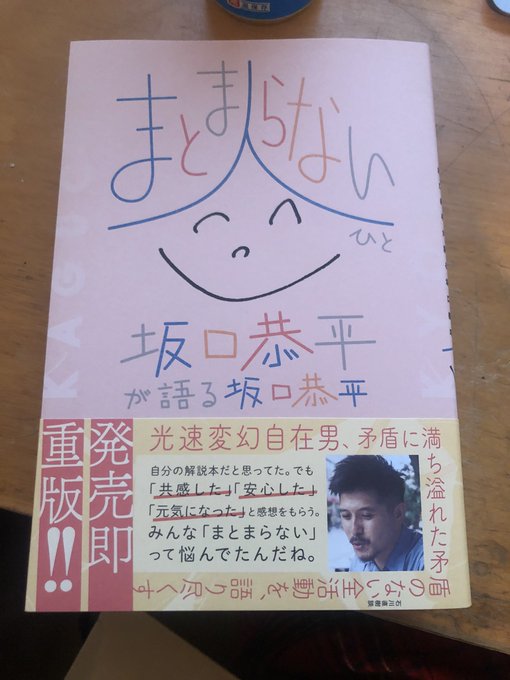 まとまらない
人
ひと
坂口恭平
が語る坂口恭平
光速変幻自在男、矛盾に満ち溢れた矛盾のない全活動を、語り尽くす
発売即
重版!!
自分の解説本だと思ってた。でも
「共感した」「安心した」
「元気になった」と感想をもらう。
みんな「まとまらない」
って悩んでたんだね。